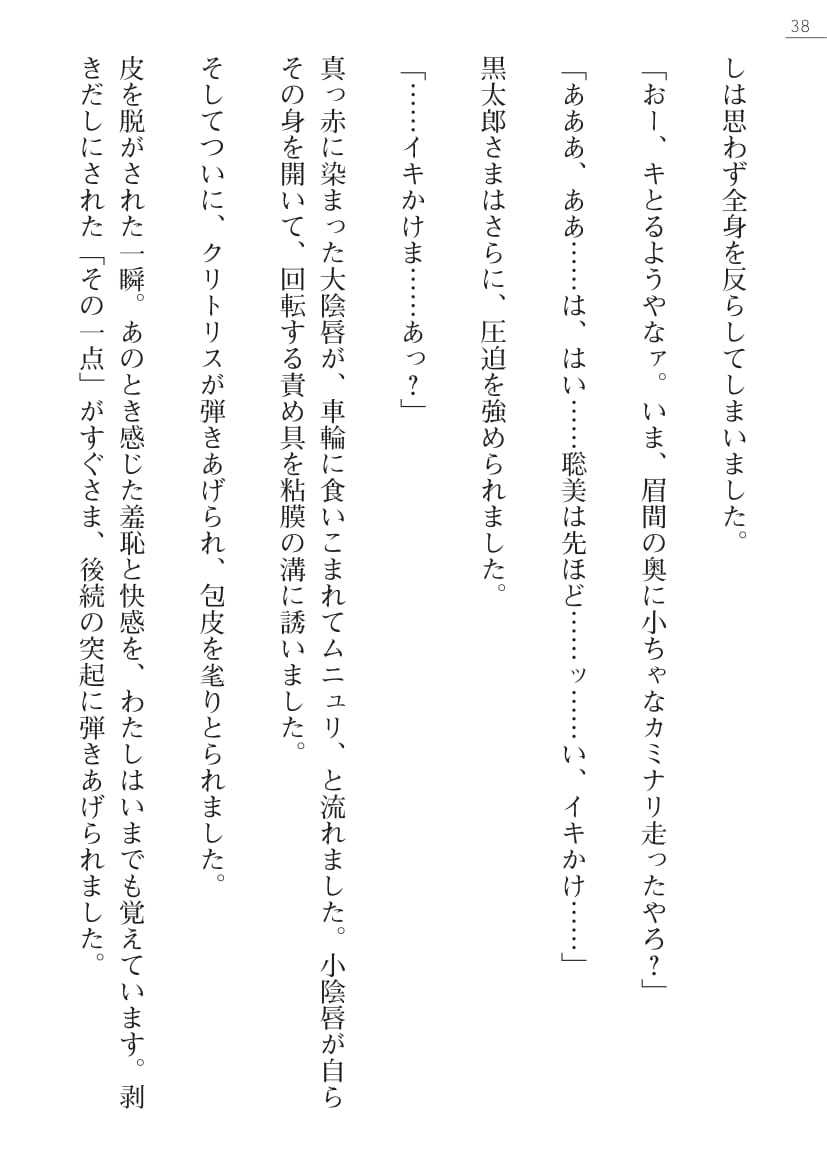 38
しは思わず全身を反らしてしまいました。
「おー、キとるようやなァ。いま、眉間の奥に小ちゃなカミナリ走ったやろ？」
「あああ、ああ……は、はい……聡美は先ほど……ッ……い、イキかけ……」
黒太郎さまはさらに、圧迫を強められました。
「……イキかけま……あっ？」
真っ赤に染まった大陰唇が、車輪に食いこまれてムニュリ、と流れました。小陰唇が自ら
その身を開いて、回転する責め具を粘膜の溝に誘いました。
そしてついに、クリトリスが弾きあげられ、包皮を毟りとられました。
皮を脱がされた一瞬。あのとき感じた羞恥と快感を、わたしはいまでも覚えています。剥
きだしにされた「その一点」がすぐさま、後続の突起に弾きあげられました。